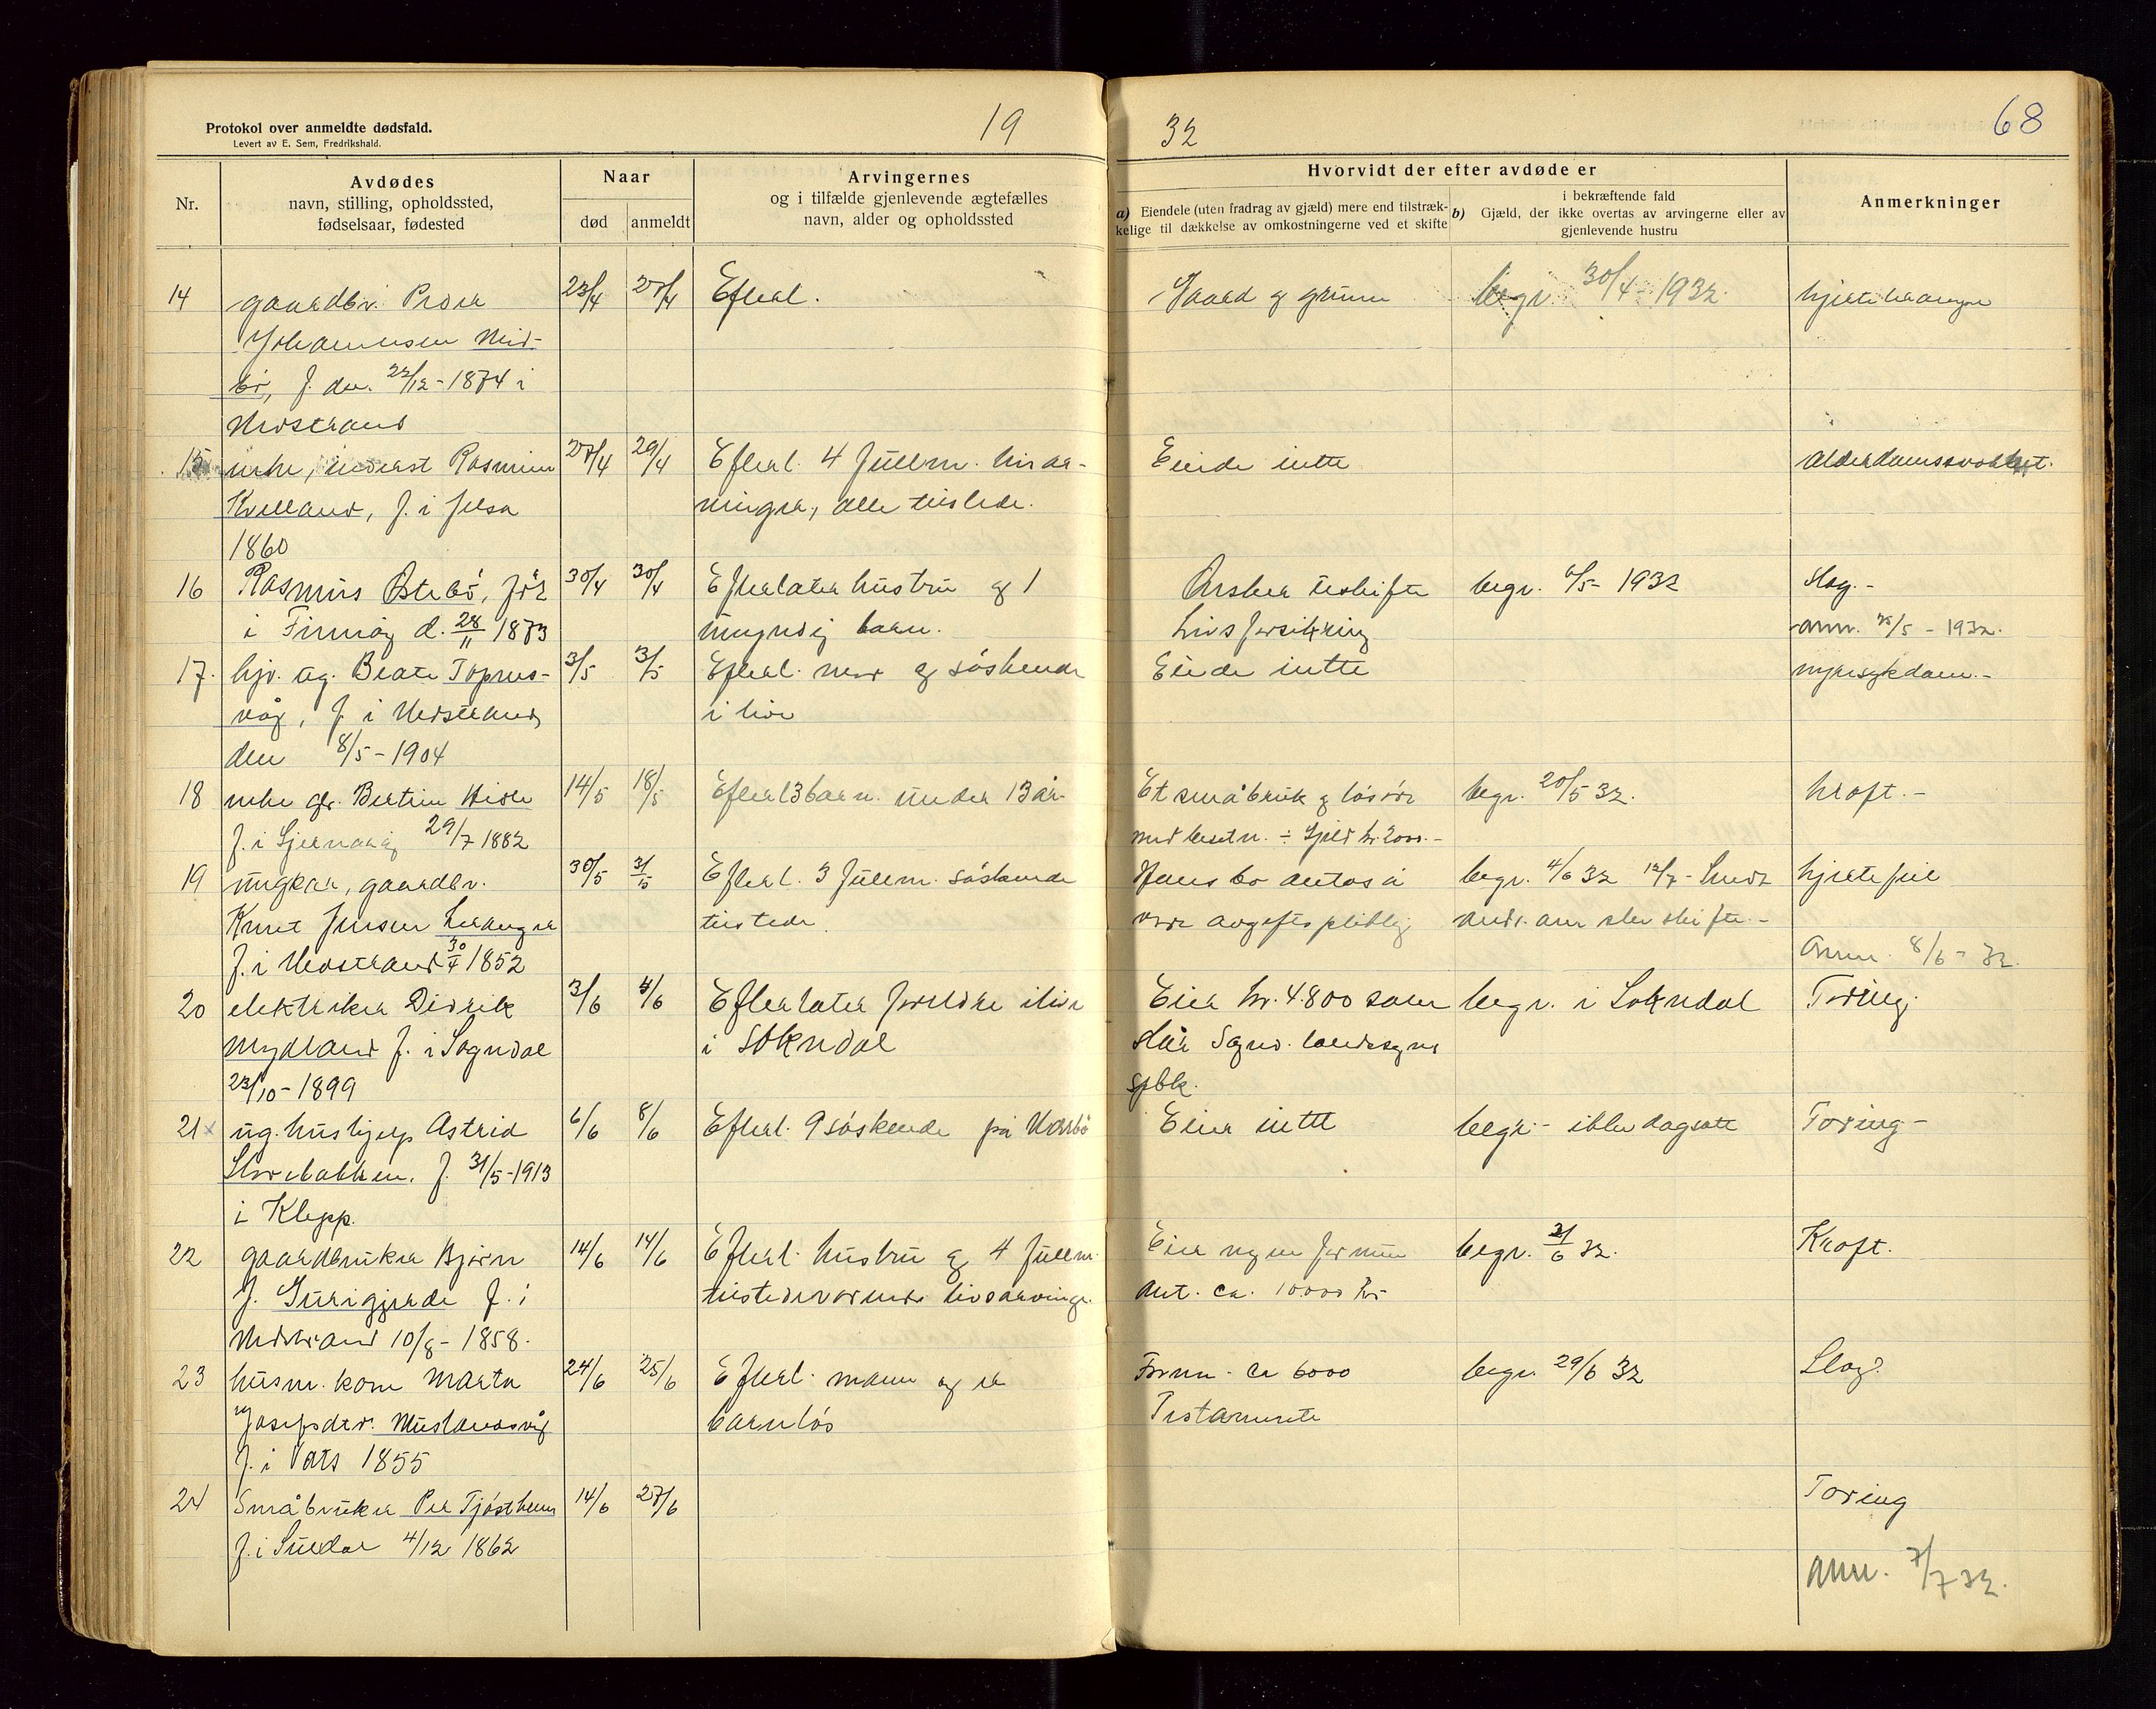 Protokol over anmeldte dødsfald.
Levert av E. Sem, Fredrikshald.
19 32
68
Nr.
Avdødes
navn, stilling, opholdssted,
fødselsaar, fødested
Naar
død
anmeldt
Arvingernes
og i tilfælde gjenlevende ægtefælles
navn, alder og opholdssted
Hvorvidt der efter avdøde er
a) Eiendele (uten fradrag av gjæld) mere end tilstræk-
kelige til dækkelse av omkostningerne ved et skifte
b) i bekræftende fald
Gjæld, der ikke overtas av arvingerne eller av
gjenlevende hustru
Anmerkninger
14 gaardbr. Peder 23/4 27/4 Efterl. Gaard og grunn begr. 30/4 - 1932
Johannesen Mid-
bö, f. den 22/12 - 1874 i
Nedstrand
15 enke, inderst Rasmine 27/4 29/4 Efterl. 4 fullm. livsar- Eiede intet alderdomssvakhet.
Kvelland, f. i Jelsa vinger, alle tilstede.
1860
16 Rasmus Østebö, född 30/4 30/4 Efterlater hustru og 1 Ønsker utskifte begr. 6/5 - 1932 Slag.-
i Finnöy d. 28/11 1873 myndig barn. Livsforsikring ann. 25/5 - 1932.
17. hjv. ug. Beate Topnes- 3/5 3/5 Efterl. mor og söskende Eiede intet nyresykdom.-
våg, f. i Nedstrand i live
den 8/5 - 1904
18 enke gr. Bertine 14/5 18/5 Efterl 3 barn under 13 år. Et småbruk og lösöre begr. 20/5 32. Kræft.-
f. i Sjernaröy 29/7 1882 med besetn. ÷ Gjeld kr. 2000.-
19 ungkar, gaardbr. 30/5 31/5 Efterl. 3 fullm. söskende Hans bo antas å begr. 4/6 32 hjertefeil
Knut Jensen Leranger tilstede. være avgiftspliktig
f. i Nedstrand 30/4 1852 Ann. 8/6 - 32.
20 elektriker Didrik 3/6 4/6 Efterlater foreldre i live Eier kr. 4.800 som begr. i Sokndal Tæring
Mydland f. i Sogndal i Sokndal står Sognd. landsogns
23/10 - 1899 spbk.
21 x ug. hushjelp Astrid 6/6 8/6 Efterl. 9 söskende på Varbö Eier intet begr. - ikke dagsatt Tæring -
Storebakken. f. 31/5 - 1913
i Klepp.
22 gaardbruker Björn 14/6 14/6 Efterl. hustru og 4 fullm. Eier egen formue begr. 21/6 32. Kræft.
J. Gurigjerde f. i tilstedeværende livsarvinge. ant. ca. 10000 kr
Nedstrand 10/8 - 1858.
23 husm. kone Marta 24/6 25/6 Efterl. mann og er Form. ca 6000 begr. 29/6 32 Slag.
Josefsdtr. Muslandsvåg barnlös Testamente
f. i Vats 1855
24 Småbruker Per Tjöstheim 14/6 27/6 Tæring
f. i Suldal 4/12 1862
ann. 7/7 32.